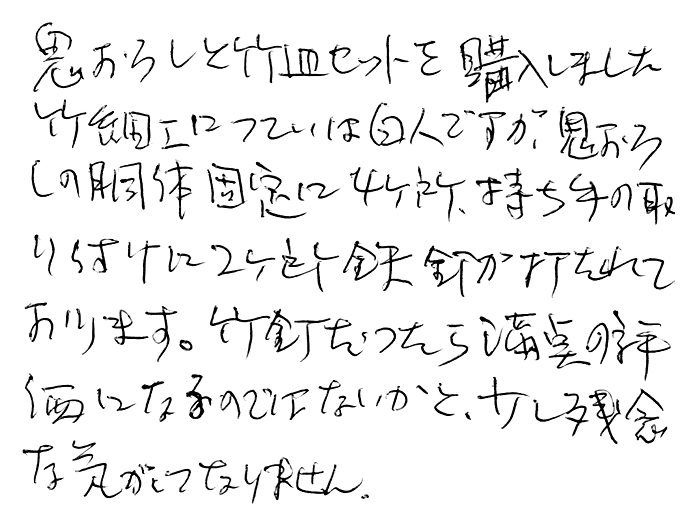 鬼おろしと竹皿セットを購入しました
竹細工については白人ですが、鬼おろ
しの胴体固定に4ケ所、持ち手の取
り付けに2ケ所鉄釘が打たれて
おります。竹釘だったら満点の評
価になるのではないかと、少し残念
な気がしてなりません。